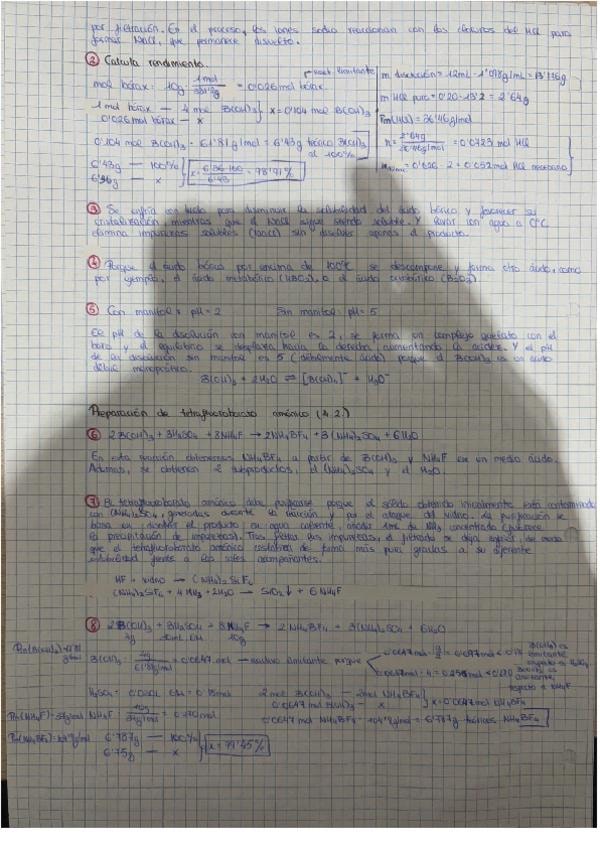 por filtración. En el proceso, los iones sodio reaccionan con los cloruros del HCl para
formar NaCl, que permanece disuelto.
② Calcula rendimiento.
mol bórax: 10g · 1mol / = 0'026 mol bórax. react. limitante
1 mol bórax — 4 mol B(OH)₃ } x = 0'104 mol B(OH)₃
0'026 mol bórax — x
0'104 mol B(OH)₃ · 61'81 g/mol = 6'43g teórico B(OH)₃
al 100%
6'43g — 100% } x = 6'36·100 / 6'43 = 98'91%
6'36g — x
m disolución = 12mL · 1'098g/mL = 13'176g
m HCl puro = 0'20 · 13'2 = 2'64g
Pm(HCl) = 36'46g/mol
n = 2'64g / 36'46g/mol = 0'0723 mol HCl
= 0'026 · 2 = 0'052 mol HCl necesario
③ Se enfría con hielo para disminuir la solubilidad del ácido bórico y favorecer su
cristalización, mientras que el NaCl sigue siendo soluble. Y lavar con agua a 0°C
elimina impurezas solubles (NaCl) sin disolver apenas el producto.
④ Porque el ácido bórico por encima de 100°C se descompone y forma otro ácido, como
por ejemplo, el ácido metabórico (HBO₂), o el ácido
⑤ Con manitol: pH = 2 Sin manitol: pH = 5
El pH de la disolución con manitol es 2, se forma un complejo quelato con el
boro y el equilibrio se desplaza hacia la derecha, aumentando la acidez. Y el pH
de la disolución sin manitol es 5 (débilmente ácido) porque el B(OH)₃ es un ácido
débil monoprótico.
B(OH)₃ + 2H₂O ⇌ [B(OH)₄]⁻ + H₃O⁺
Preparación de tetrafluoroborato amónico (4.2.)
⑥ 2B(OH)₃ + 3H₂SO₄ + 8NH₄F → 2NH₄BF₄ + 3(NH₄)₂SO₄ + 6H₂O
En esta reacción obtenemos NH₄BF₄ a partir de B(OH)₃ y NH₄F en un medio ácido.
Además, se obtienen 2 subproductos, el (NH₄)₂SO₄ y el H₂O.
⑦ El tetrafluoroborato amónico debe purificarse porque el sólido obtenido inicialmente está contaminado
con (NH₄)₂SO₄, generadas durante la reacción y por el ataque del vidrio. La purificación se
basa en disolver el producto en agua caliente, añadir 1mL de NH₃ concentrado (favorece
la precipitación de impurezas). Tras filtrar las impurezas, el filtrado se deja enfriar, de modo
que el tetrafluoroborato amónico cristaliza de forma más pura gracias a su diferente
solubilidad frente a las sales acompañantes.
HF + vidrio → (NH₄)₂SiF₆
(NH₄)₂SiF₆ + 4NH₃ + 2H₂O → SiO₂↓ + 6NH₄F
⑧ 2B(OH)₃ + 3H₂SO₄ + 8NH₄F → 2NH₄BF₄ + 3(NH₄)₂SO₄ + 6H₂O
10g
B(OH)₃: 4g / 61'81g/mol = 0'0647 mol → reactivo limitante porque
0'0647mol · 4 = 0'258mol < 0'270
H₂SO₄ = = 0'18mol 2 mol B(OH)₃ — 2mol NH₄BF₄ } x = 0'0647 mol NH₄BF₄
0'0647 mol B(OH)₃ — x
Pm(NH₄F) = 37g/mol NH₄F: 10g / 37g/mol = 0'270mol
0'0647 mol NH₄BF₄ · 104'9g/mol = 6'787g teóricos NH₄BF₄
Pm(NH₄BF₄) = 104'9g/mol 6'787g — 100% } x = 99'45%
6'75g — x